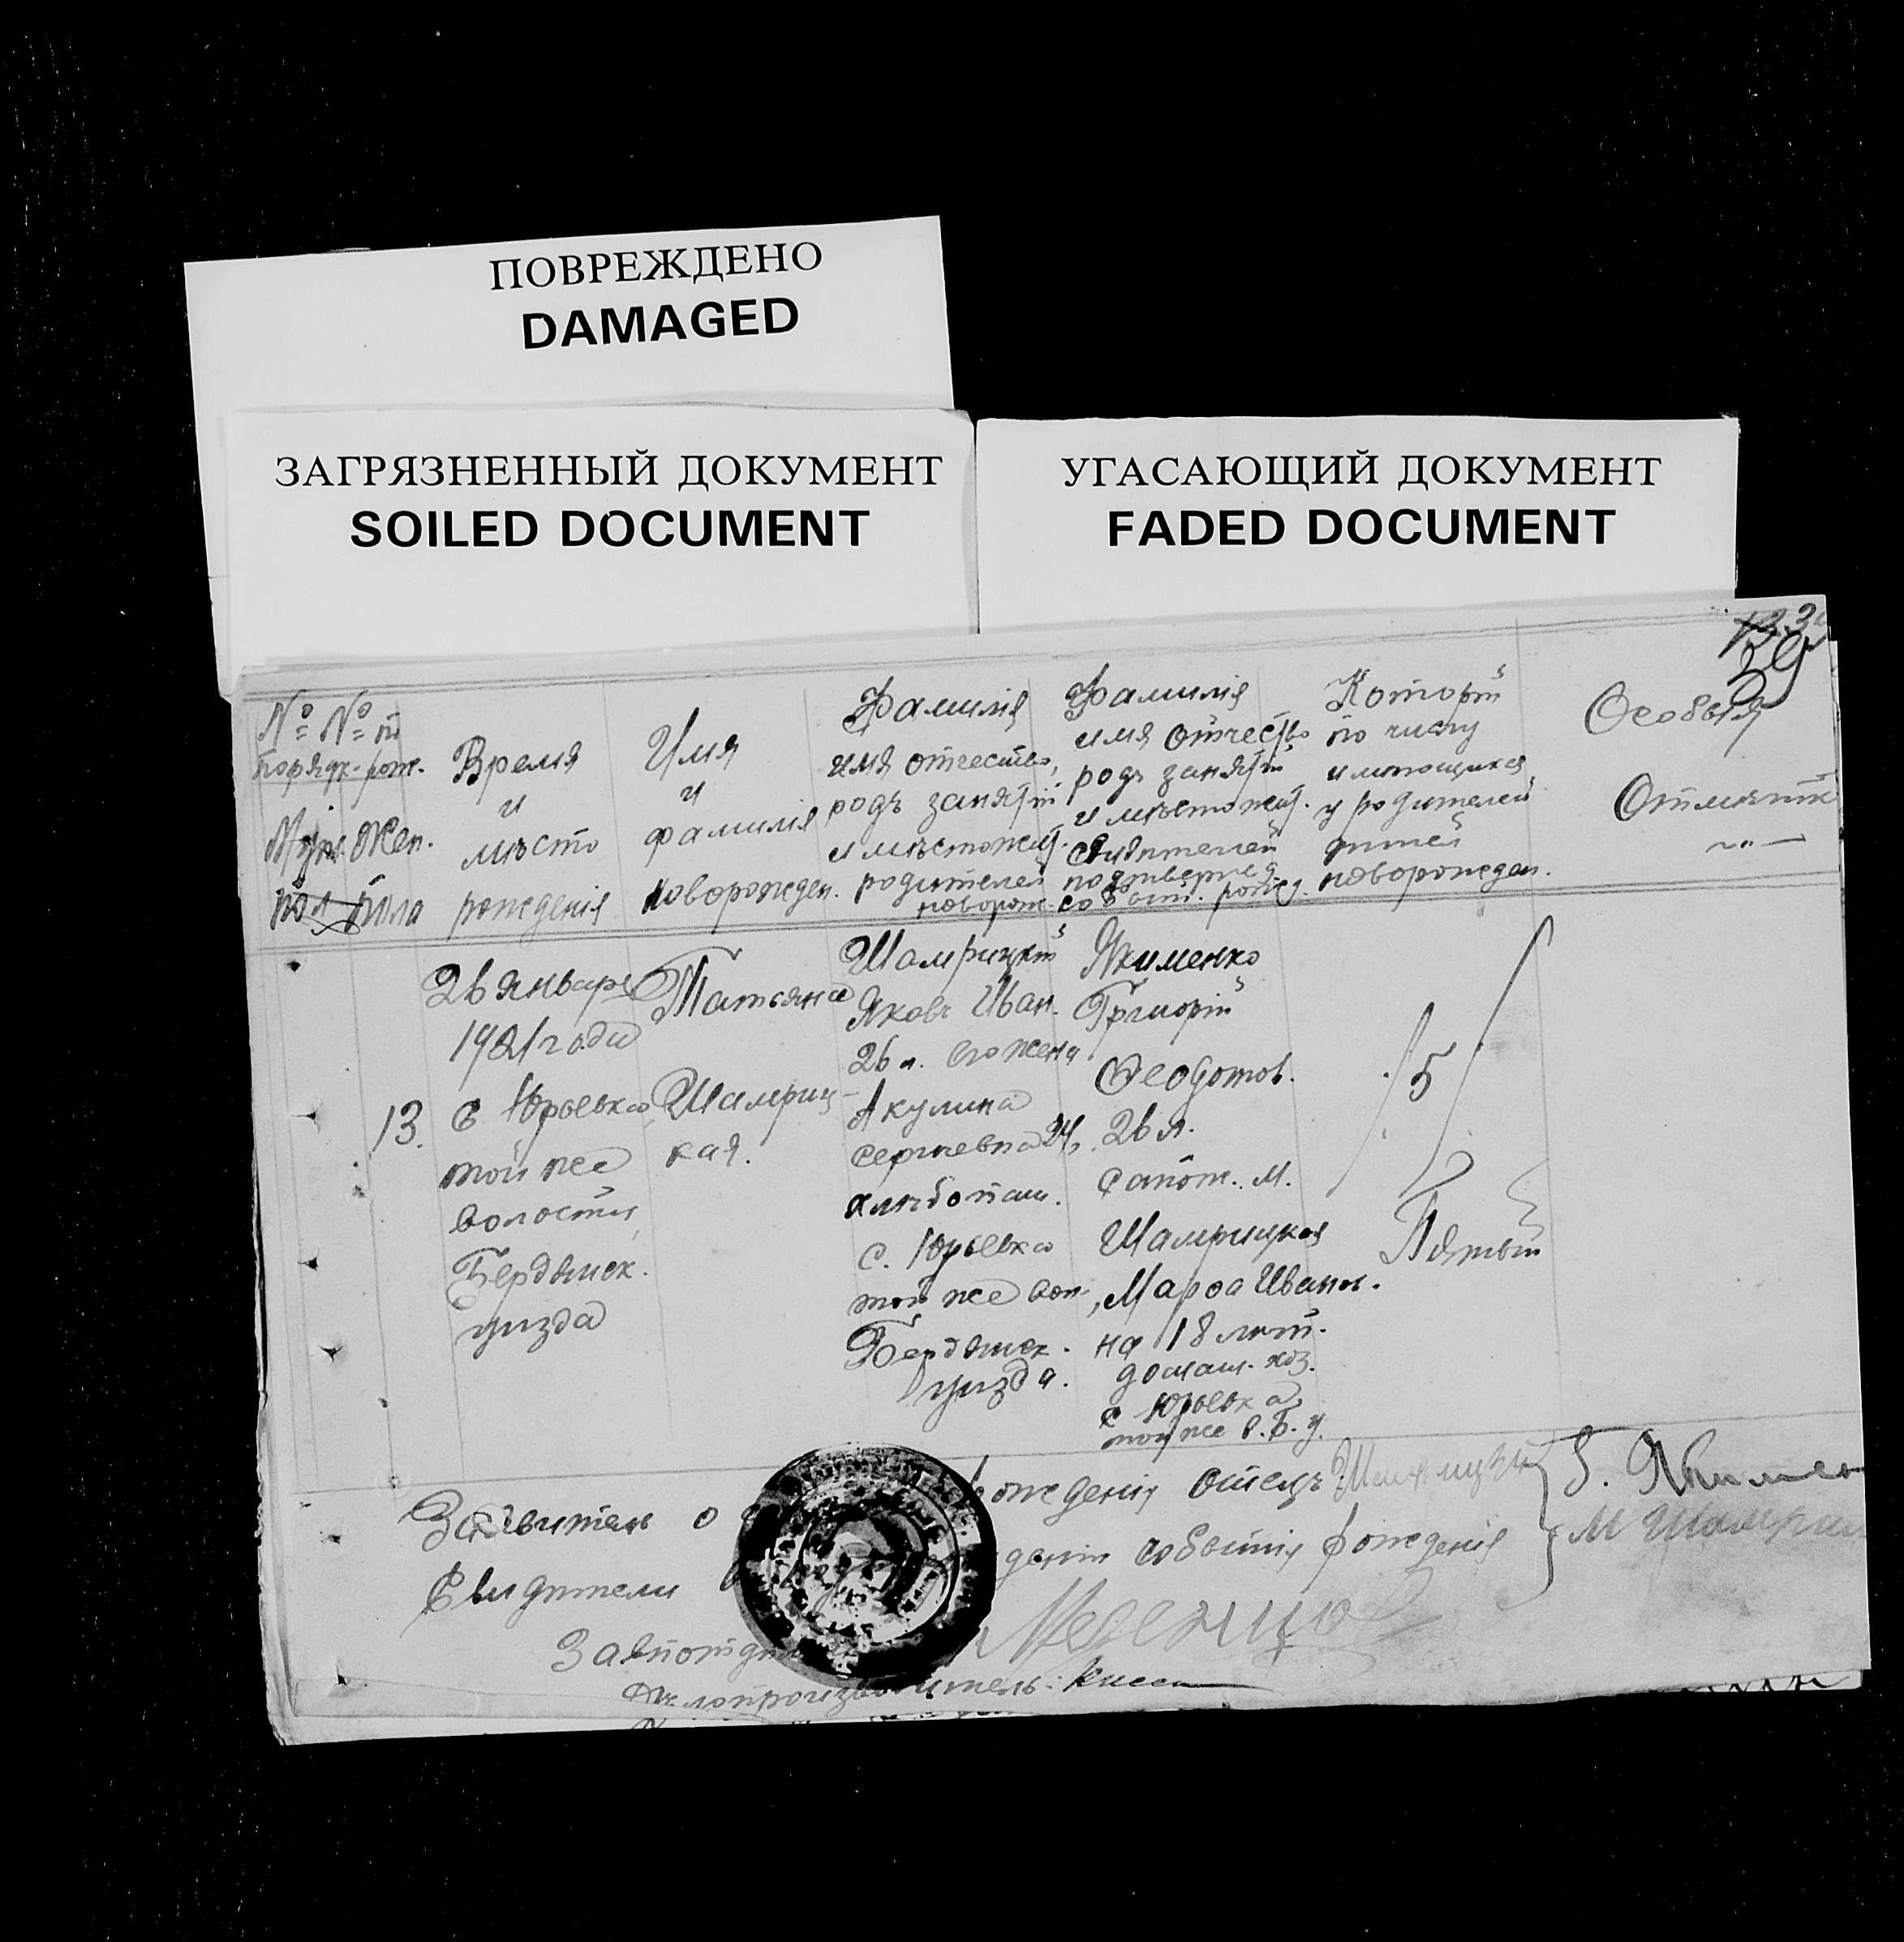 ПОВРЕЖДЕНО
DAMAGED
ЗАГРЯЗНЕННЫЙ ДОКУМЕНТ
SOILED DOCUMENT
УГАСАЮЩИЙ ДОКУМЕНТ
FADED DOCUMENT
39
№ № п
порядк. рож.
Муж. Жен.
пол пола
Время
и
мѣсто
рожденія
Имя
и
фамилія
новорожден.
Фамилія
имя отчество,
родъ занятій
и мѣстожит.
родителей
новорож.
Фамилія
имя отчество
родъ занятій
и мѣстожит.
свидѣтелей
подтвержд.
событ. рожд.
Который
по числу
имѣющихся
у родителей
дѣтей
новорожден.
Особыя
Отмѣтки
13.
26 января
1921 года
с Юрьевка
той же
волости
Бердянск.
уѣзда
Татьяна
Шамриц-
кая.
Шамрицкій
Яковъ Иван.
26 л. его жена
Акулина
Сергѣевна 24
хлѣбопаш.
с. Юрьевка
той же вол.
Бердянск.
уѣзда.
Якименко
Григорій
Феодотов.
26 л.
сапож. м.
Шамрицкая
Марфа Иванов.
на 18 лѣт.
домаш. хоз.
с Юрьевка
той же в. Б. у.
/5/
Пятый
Заявитель о рожденія отецъ
Свидѣтели денія событія рожденія
Г. Якимен
М Шамриц
Завпотдѣл
Дѣлопроизводитель: